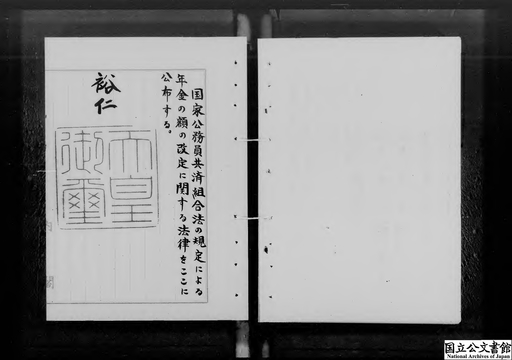 国家公務員共済組合法の規定による
年金の額の改定に関する法律をここに
公布する。
裕仁
天皇
御璽
国立公文書館
National Archives of Japan